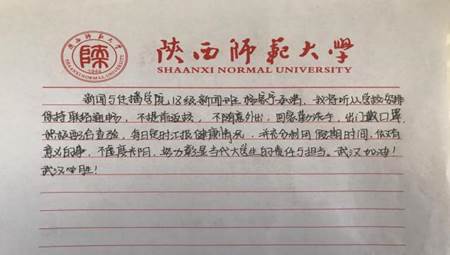 陕西师范大学
1944
陕西师范大学
SHAANXI NORMAL UNIVERSITY
新闻与传播学院18级新闻班 承诺，我将听从学校安排
保持联络通畅，不提前返校，不随意外出，回家勤洗手，出门戴口罩，
自查验，每日定时汇报健康情况，并充分利用假期时间，做有
意义的事，不虚度光阴，努力彰显当代大学生的责任与担当。武汉加油！
武汉必胜！